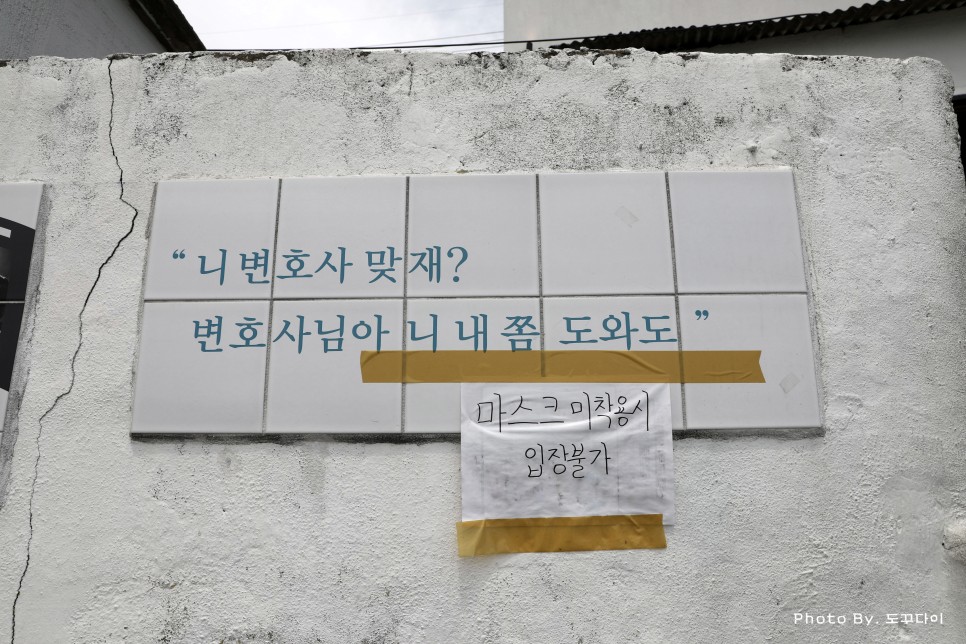 “ 니 변호사 맞재?
변호사님아 니 내 쫌 도와도 ”
마스크 미착용시
입장불가
Photo By. 도꾸다이